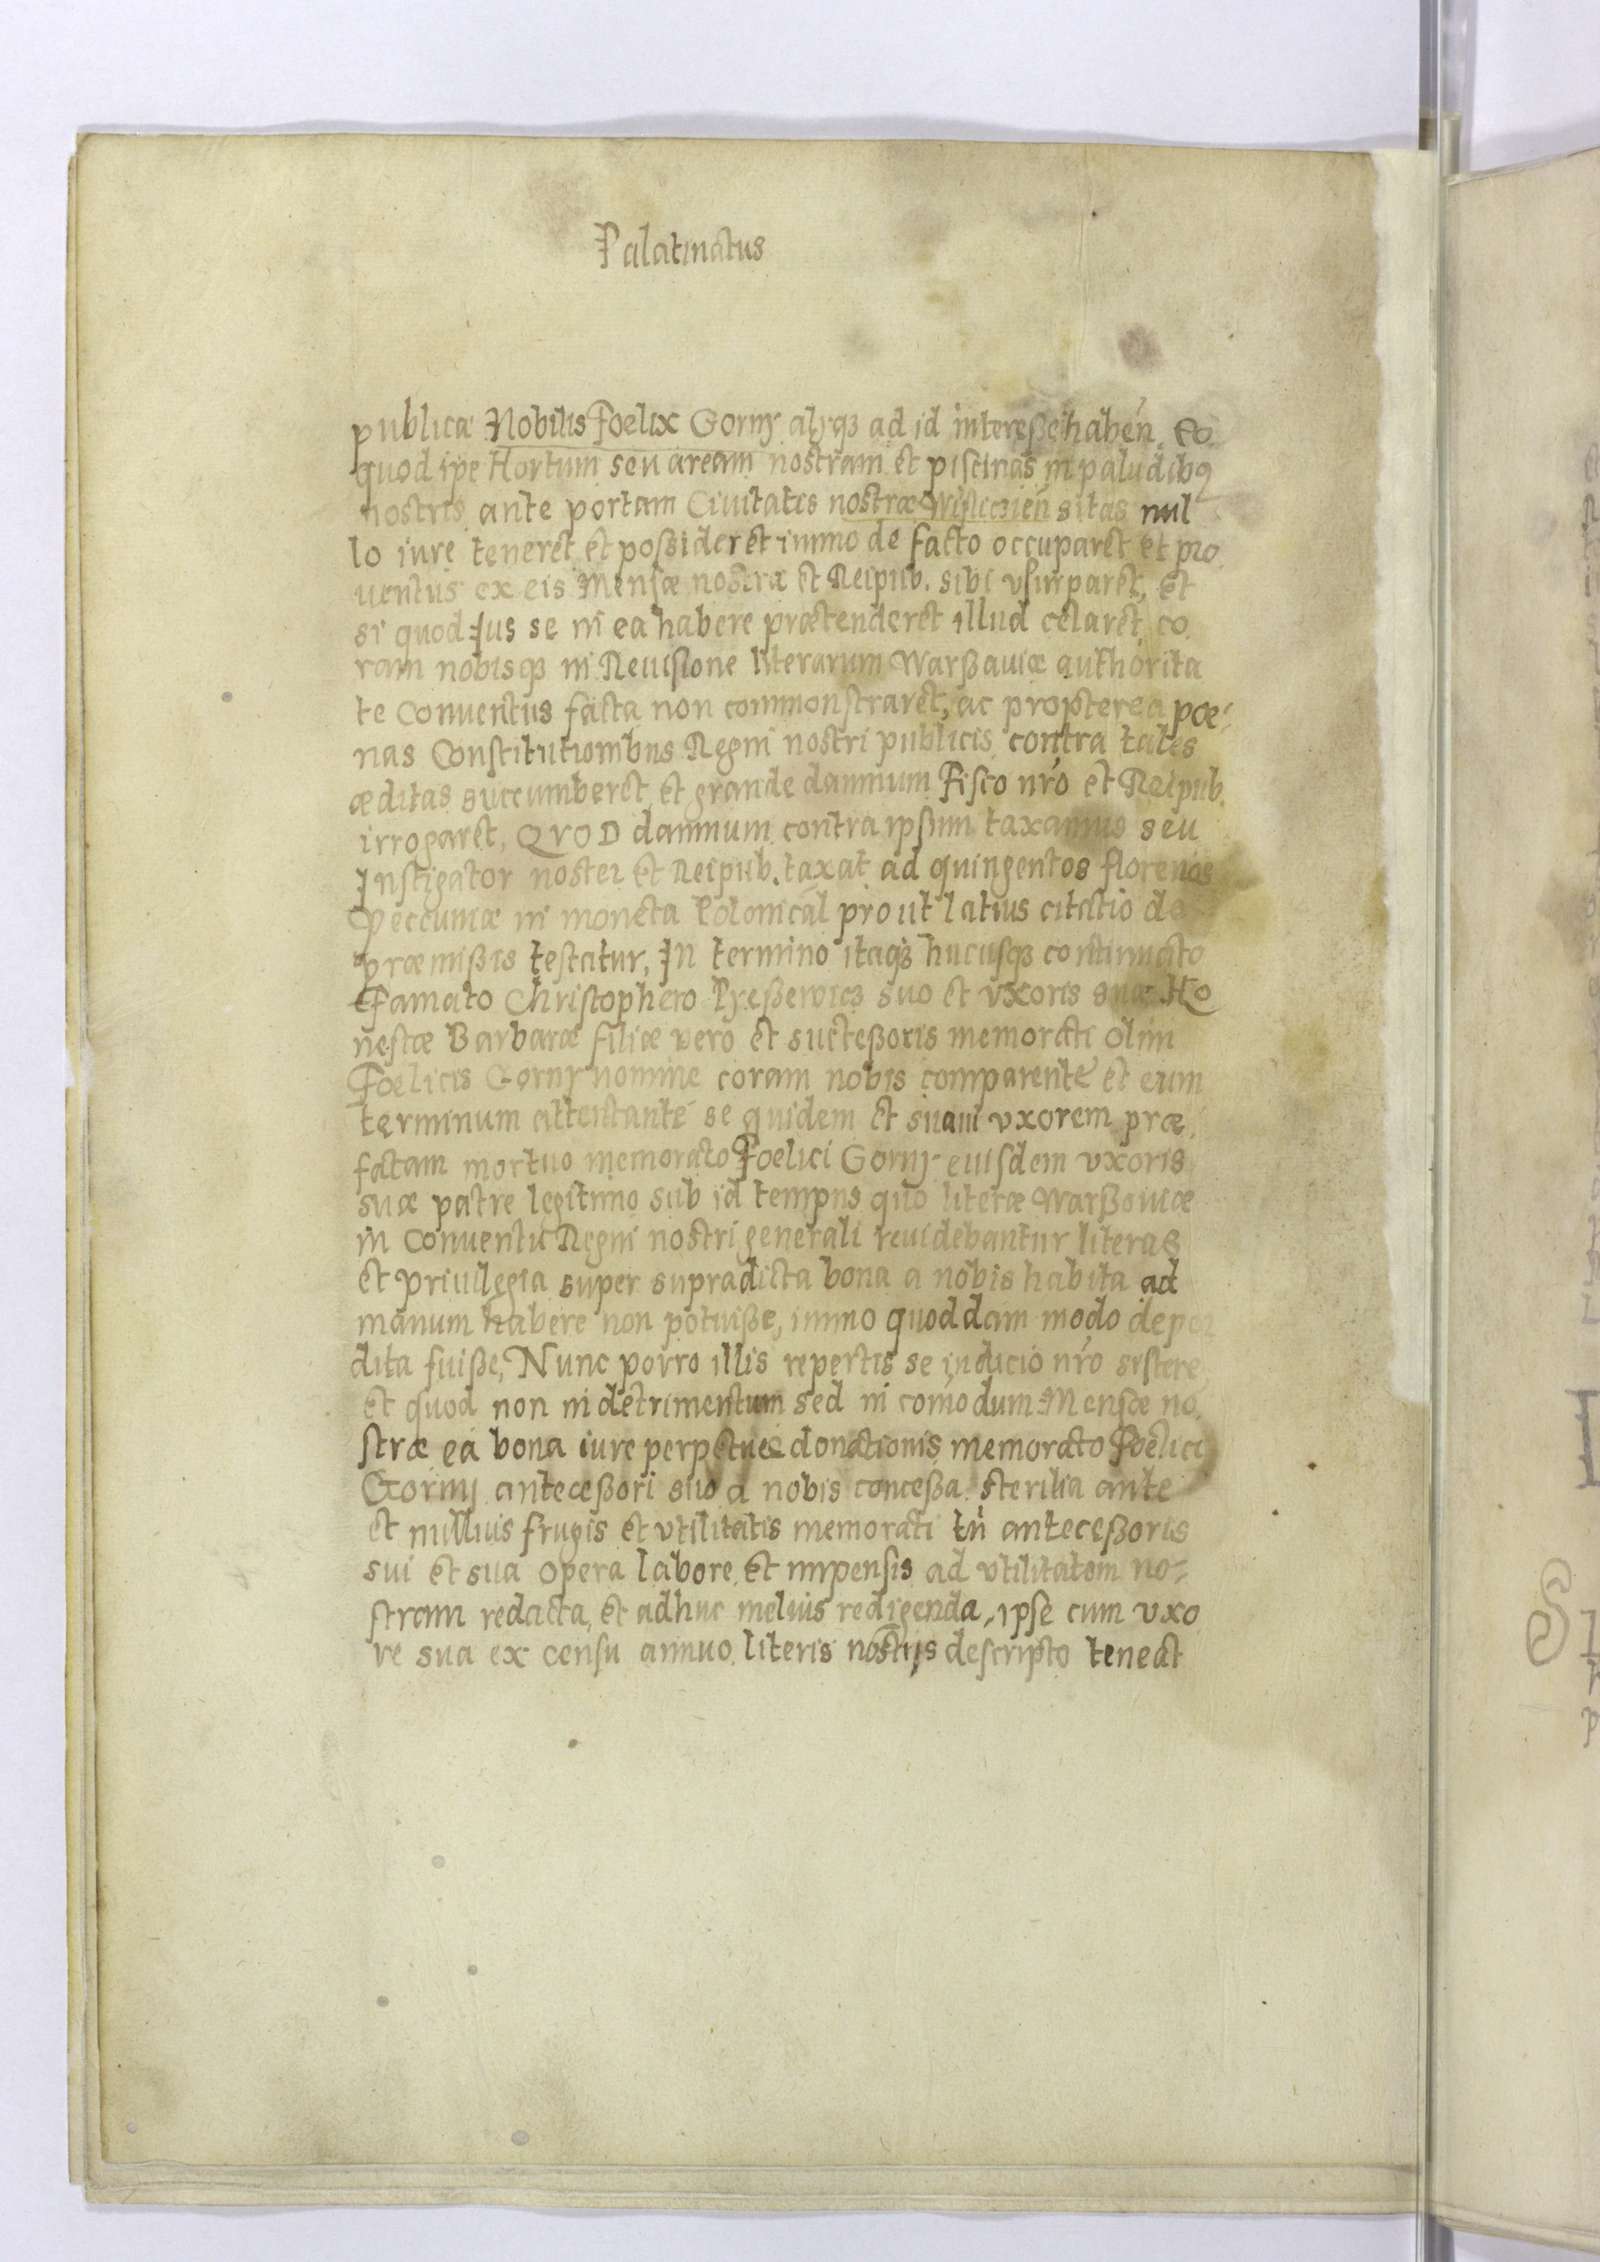 Palatinatus
publicæ Nobilis Foelix Gorny alyqȝ ad id intereße habeń, eo
quod ipe Hortum seu aream nostram et piscinas in paludibꝯ
nostris ante portam Ciuitatis nostræ Wislicień sitas nul
lo iure teneret et poßideret immo de facto occuparet et pro
uentus ex eis Mensæ nostræ et Reipub. sibi vsurparet, et
si quod Jus se in ea habere prætenderet illud celaret, co
ram nobisqȝ in Reuisione literarum Warßauiæ authorita
te Conuentus facta non commonstraret, ac propterea pœ-
nas Constitutionibus Regni nostri publicis contra tales
æditas succumberet et grande damnum Fisco nr̃o et Reipub.
irrogaret, QVOD damnum contra ipsum taxamus seu
Instigator noster et Reipub. taxat ad quingentos florenos
Peccuniæ in moneta Polonicał prout latius citatio de
præmißis testatur, In termino itaqȝ hucusqȝ continuato
Famato Christophero suo et vxoris suæ Ho
nestæ Barbaræ filiæ vero et succeßoris memorati olim
Foelicis Gorny nomine coram nobis comparente et eum
terminum attentante se quidem et suam vxorem præ
fatam mortuo memorato Foelici Gorny eiusdem vxoris
suæ patre legitimo sub id tempus quo literæ Warßouiæ
in Conuentu Regni nostri generali reuidebantur literas
et priuilegia super supradicta bona a nobis habita ad
manum habere non potuiße, immo quoddam modo deper
dita fuiße, Nunc porro illis repertis se iudicio nr̃o sistere
et quod non in detrimentum sed in com̃odum Mensæ no
stræ ea bona iure perpetuæ donationis memorato Foelici
Gorny anteceßori suo a nobis conceßa sterilia ante
et nullius frugis et vtilitatis memorati tn̄ anteceßoris
sui et sua opera labore et impensis ad vtilitatem no-
stram redacta, et adhuc melius redigenda, ipse cum vxo
re sua ex censu annuo literis nostris descripto teneat